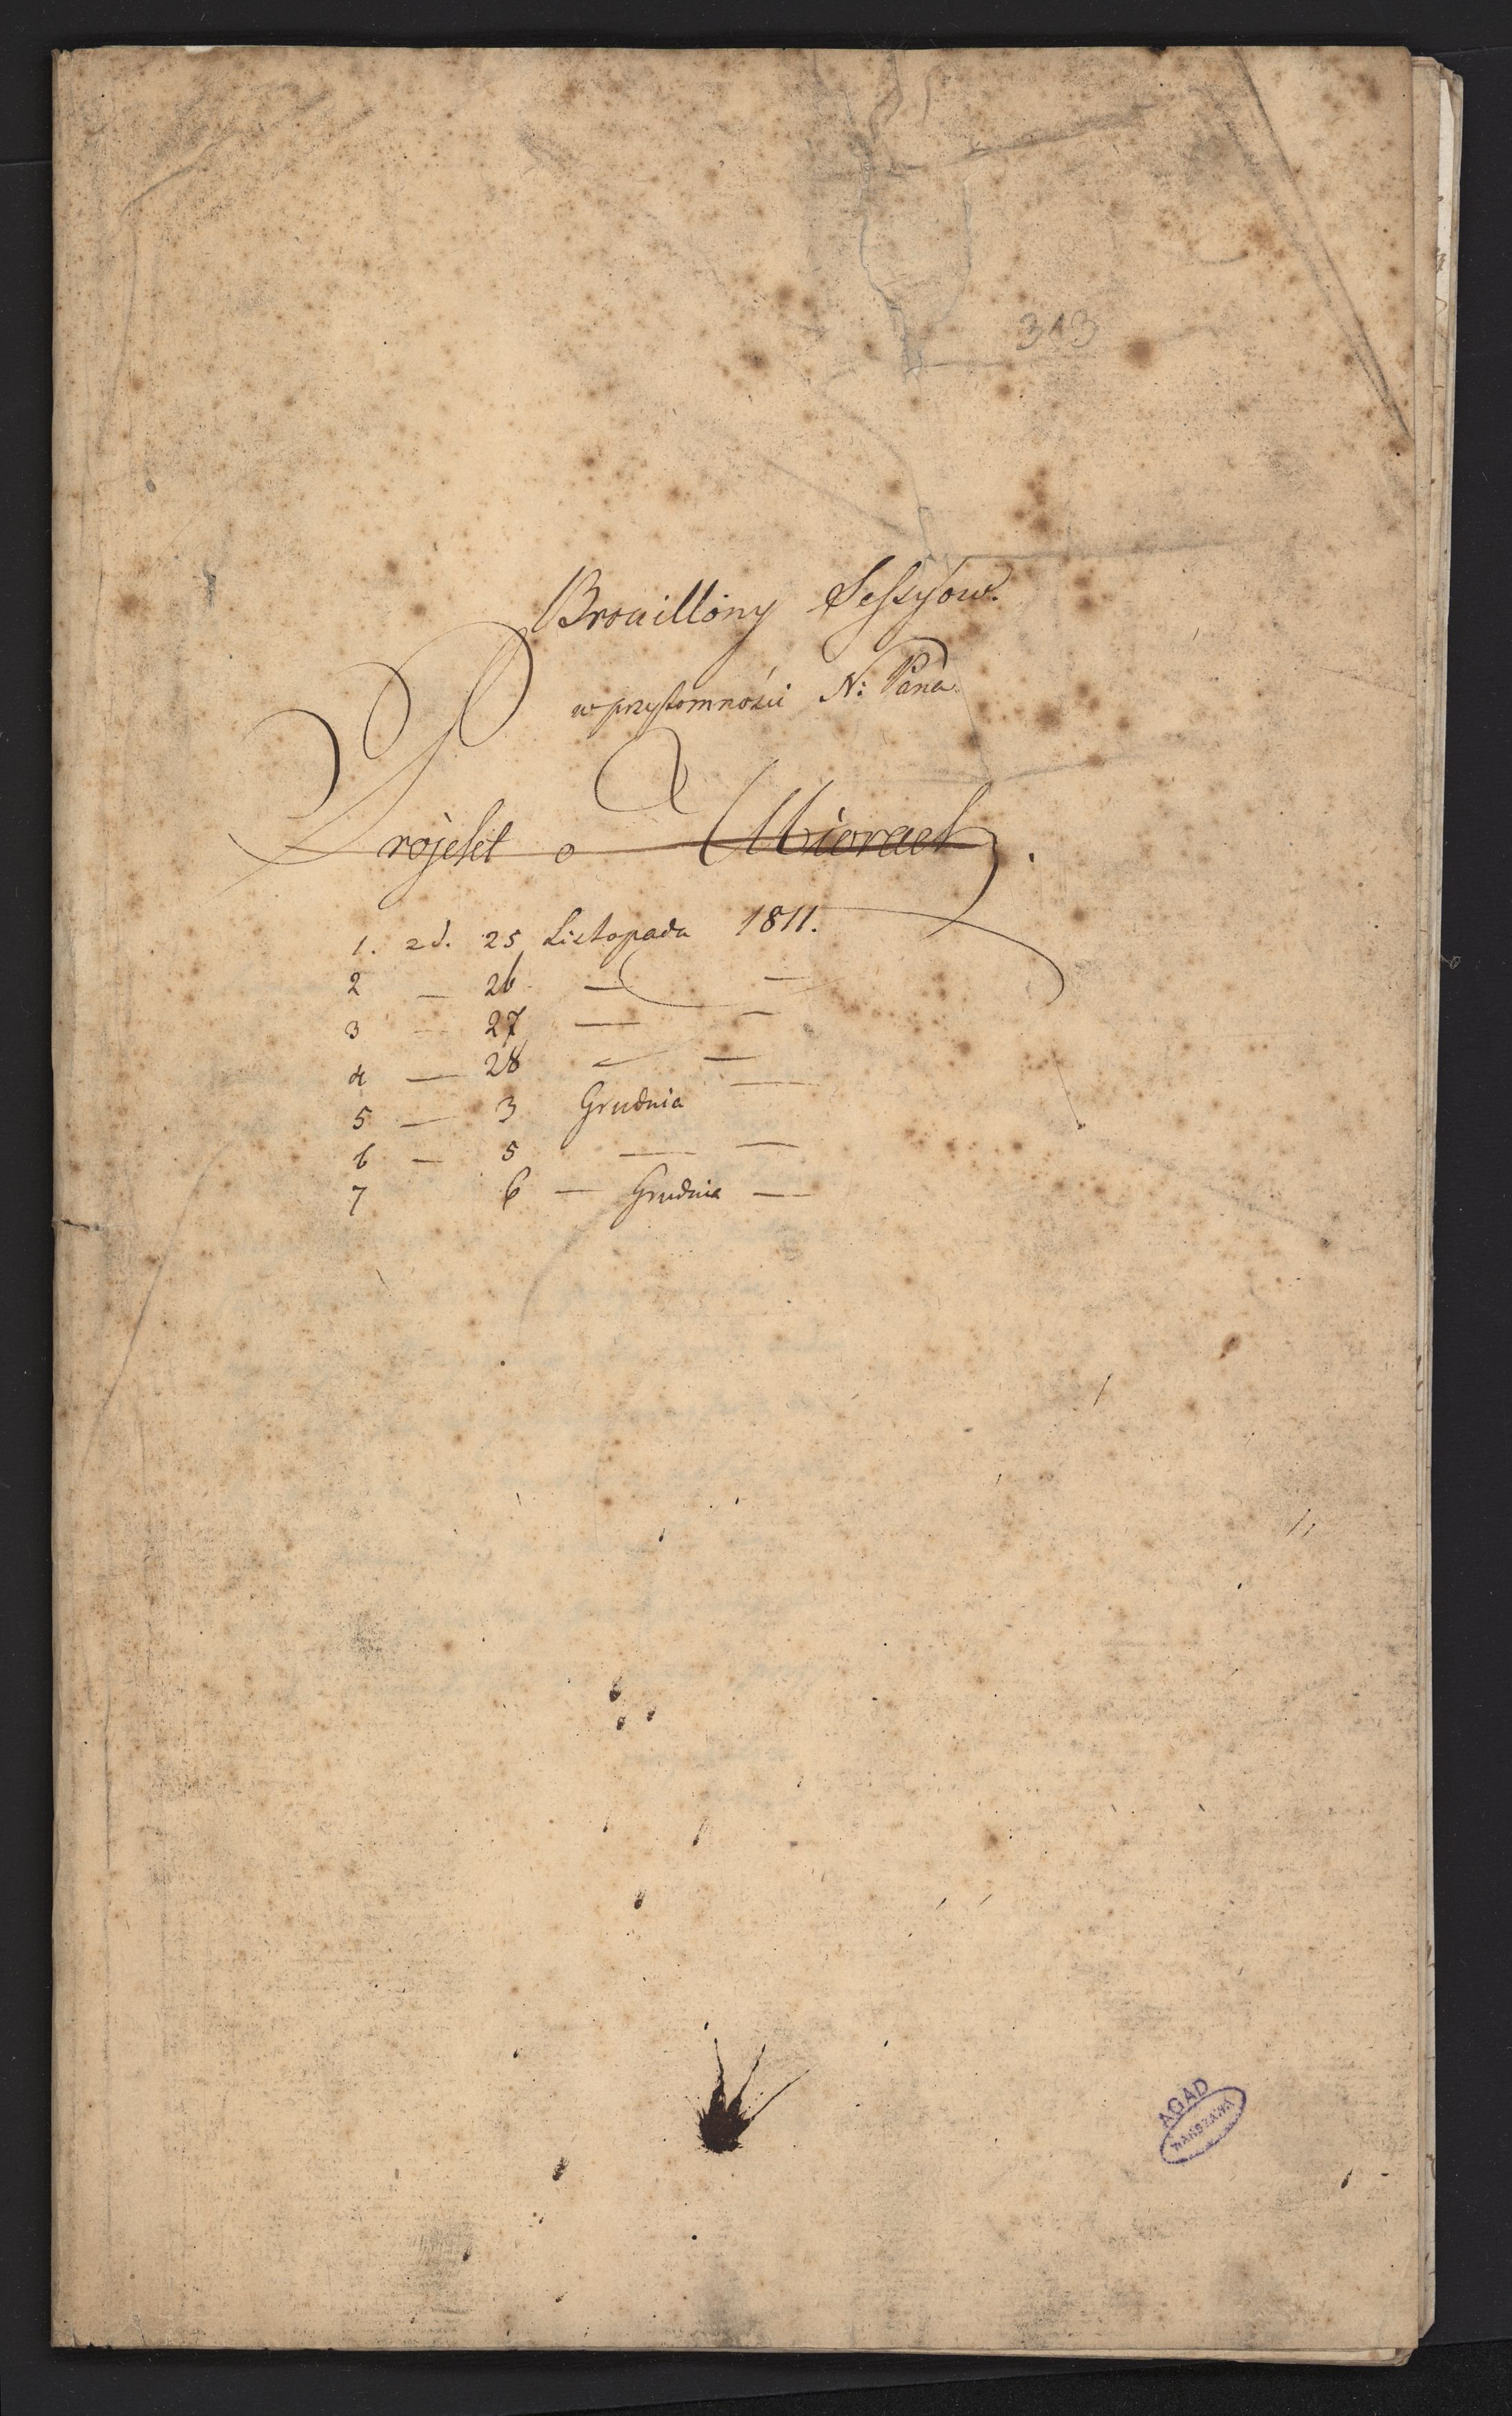 313
Brouillony Sessyow.
w przytomności N: Pana
Projekt o Miarach.
1. z d. 25 Listopada 1811.
2 — 26 — —
3 — 27 — —
4 — 28 — —
5 — 3 Grudnia —
6 — 5 — —
7 6 — Grudnia —
AGAD
WARSZAWA